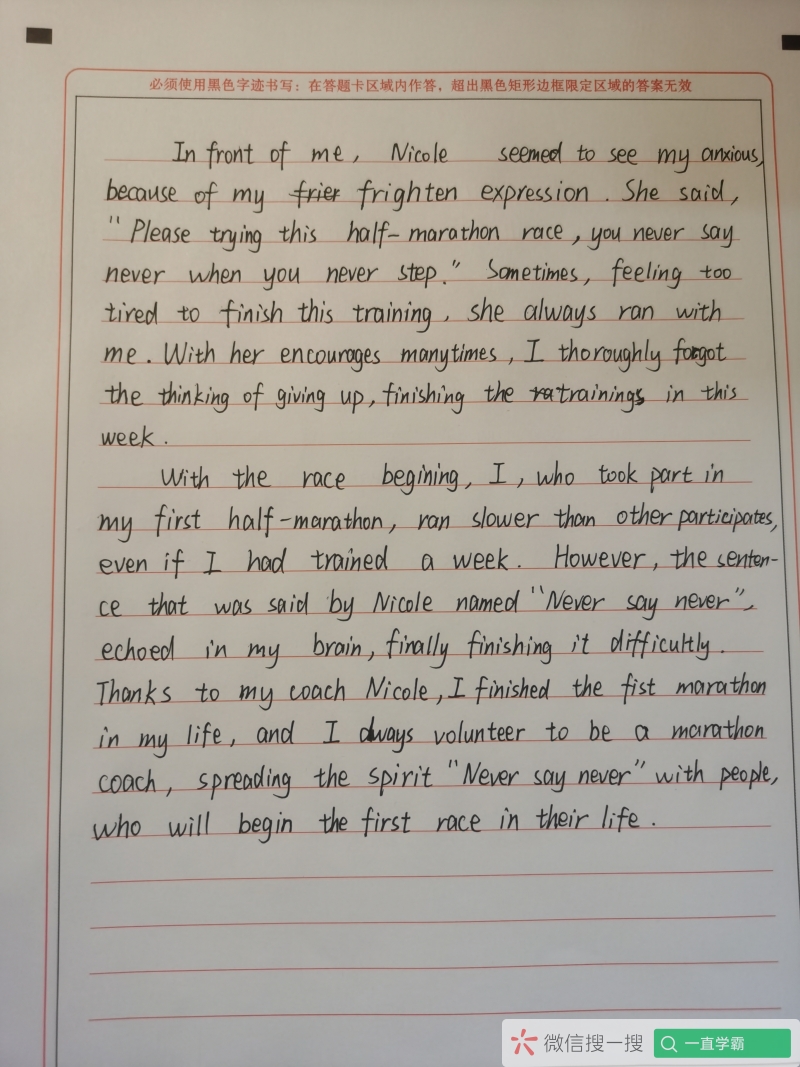 必须使用黑色字迹书写：在答题卡区域内作答，超出黑色矩形边框限定区域的答案无效
In front of me, Nicole seemed to see my anxious,
because of my frier frighten expression. She said,
"Please trying this half-marathon race, you never say
never when you never step." Sometimes, feeling too
tired to finish this training, she always ran with
me. With her encourages manytimes, I thoroughly forgot
the thinking of giving up, finishing the ra trainings in this
week.
With the race begining, I, who took part in
my first half-marathon, ran slower than other participates,
even if I had trained a week. However, the senten-
ce that was said by Nicole named "Never say never",
echoed in my brain, finally finishing it difficultly.
Thanks to my coach Nicole, I finished the fist marathon
in my life, and I always volunteer to be a marathon
coach, spreading the spirit "Never say never" with people,
who will begin the first race in their life.
微信搜一搜
一直学霸